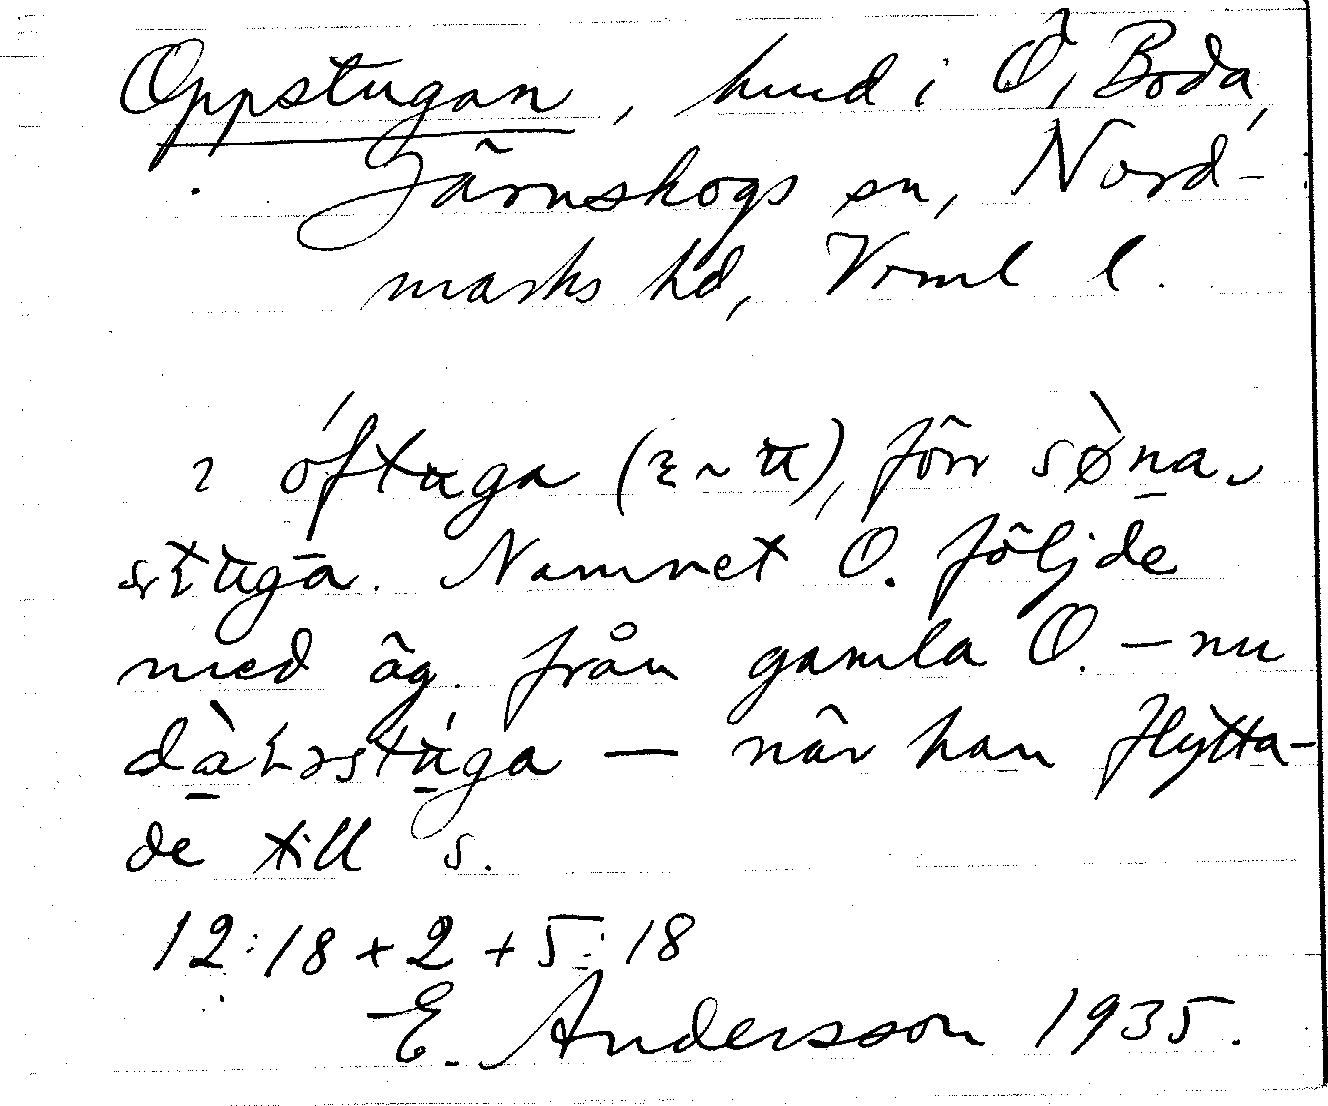 Oppstugan, hmd i Ö, Boda,
Järnskogs sn, Nord-
marks hd, Vrml l.
óftuga (~), förr sø̀na
stuga. Namnet O. följde
med äg. från gamla O. – nu
stúga – när han flytta-
de till s.
12:18 + 2 + 5:18
E. Andersson 1935.